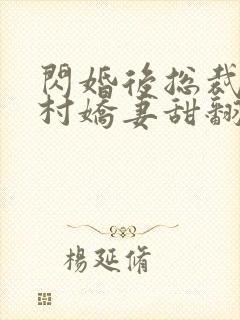 閃婚後總裁
村嬌妻甜翻
楊延脩